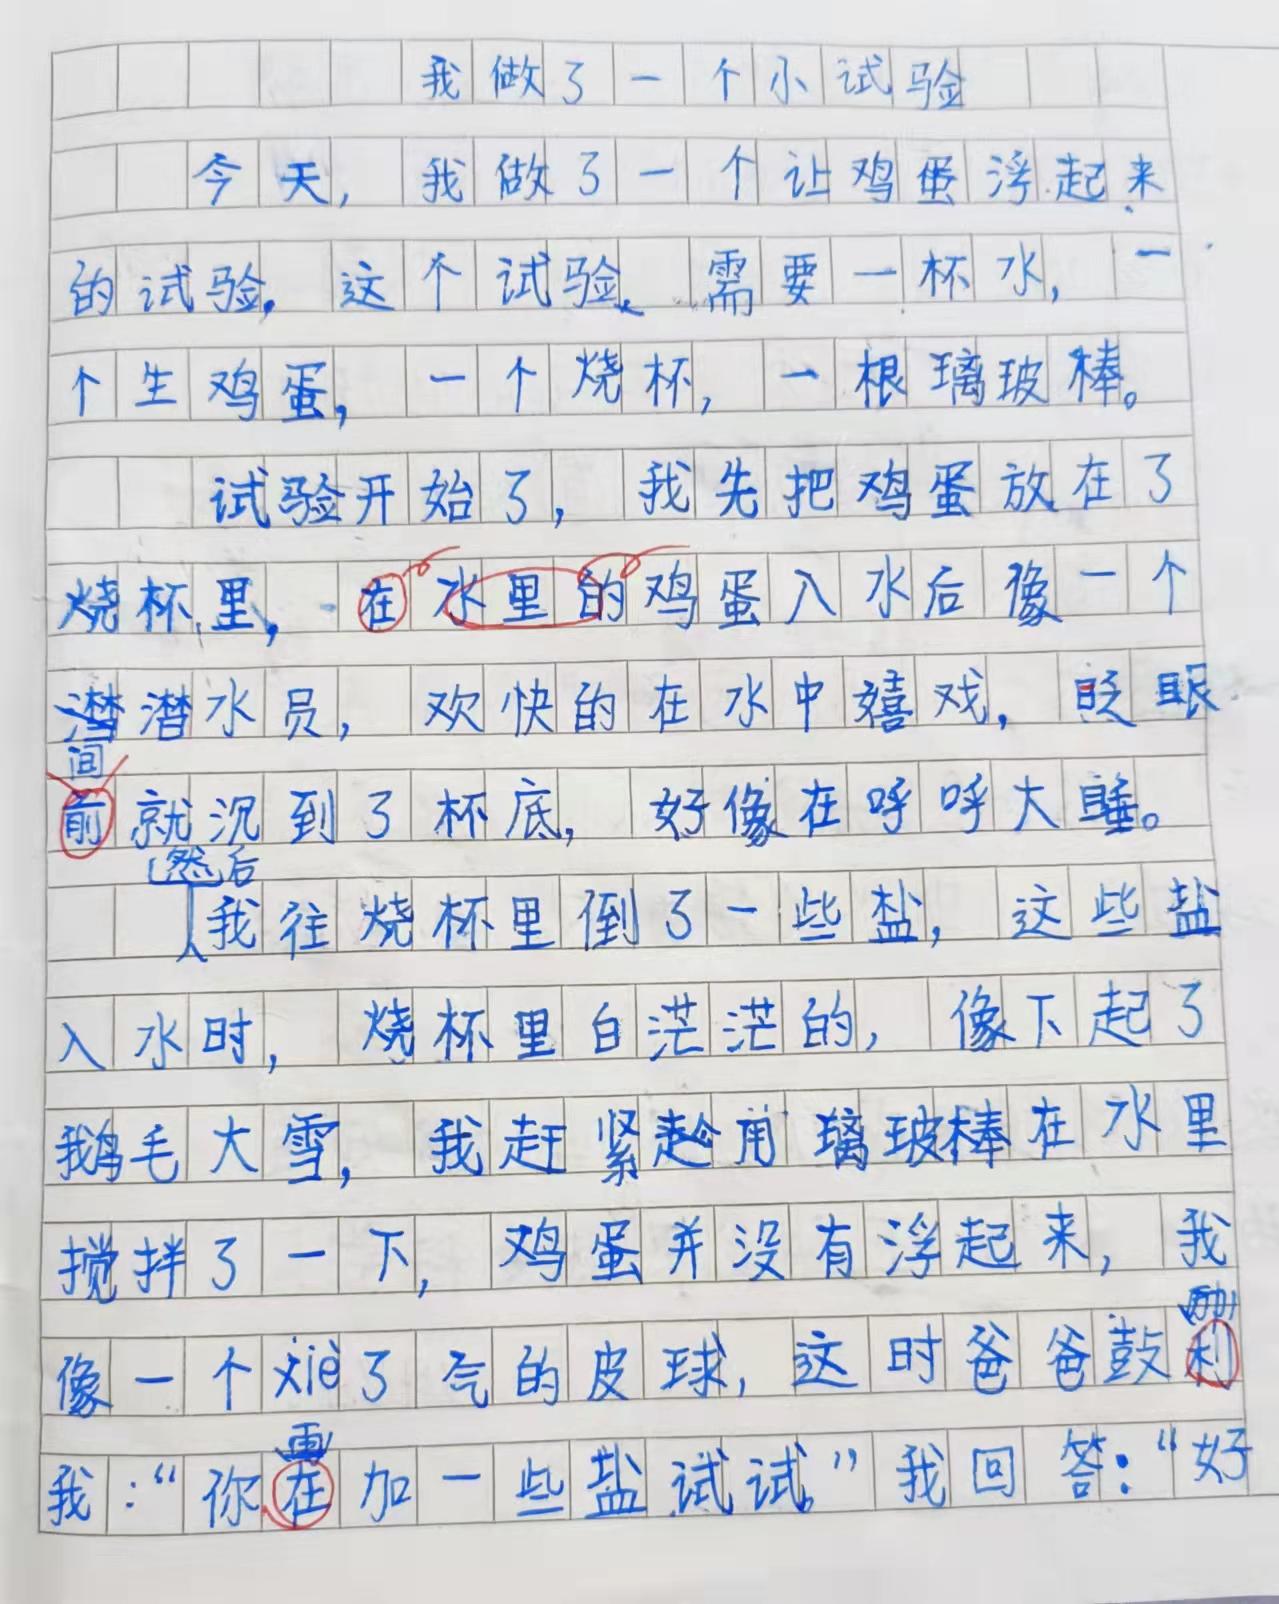 我做了一个小试验
今天，我做了一个让鸡蛋浮起来
的试验，这个试验、需要一杯水，一
个生鸡蛋，一个烧杯，一根璃玻棒。
试验开始了，我先把鸡蛋放在了
烧杯里，在水里的鸡蛋入水后像一个
潜潜水员，欢快的在水中嬉戏，眨眼
间
前就沉到了杯底，好像在呼呼大睡。
然后
我往烧杯里倒了一些盐，这些盐
入水时，烧杯里白茫茫的，像下起了
鹅毛大雪，我赶紧趁用璃玻棒在水里
搅拌了一下，鸡蛋并没有浮起来，我
励
像一个xiè了气的皮球，这时爸爸鼓利
再
我：“你在加一些盐试试。”我回答：“好